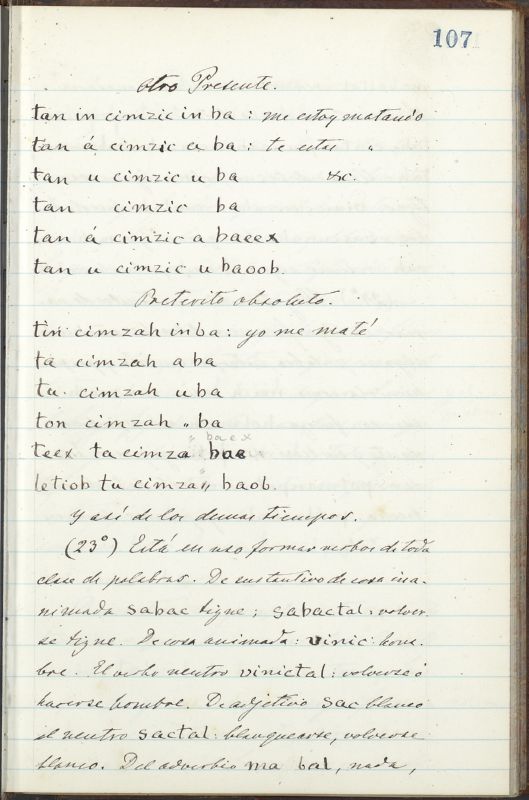 107
otro Presente.
tan in cimzic in ba : me estoy matando
tan á cimzic a ba : te estas "
tan u cimzic u ba &c.
tan cimzic ba
tan á cimzic a baeex
tan u cimzic u baoob.
Preterito absoluto.
tin cimzah inba : yo me maté
ta cimzah a ba
tu cimzah u ba
ton cimzah " ba
" baex
teex ta cimza bae
letiob tu cimza " baob.
Y así de los demas tiempos.
(23°) Está en uso formar verbos de toda
clase de palabras. De sustantivo de cosa ina-
nimada sabac tigne ; sabactal : volver-
se tigne. De cosa animada : vinic : hom-
bre. El verbo neutro vinictal : volverse ó
hacerse hombre. De adjetivo sac blanco
el neutro sactal : blanquearse, volverse
blanco. Del adverbio ma bal, nada,